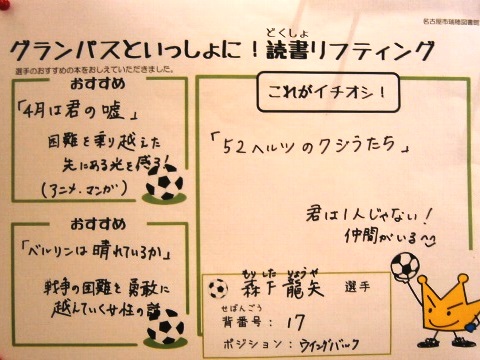 名古屋市瑞穂図書館
グランパスといっしょに！読書リフティング
どくしょ
選手のおすすめの本をおしえていただきました。
おすすめ
「4月は君の嘘」
困難を乗り越えた
先にある光を感る！
(アニメ・マンガ)
おすすめ
「ベルリンは晴れているか」
戦争の困難を勇敢に
越えていく女性の話
これがイチオシ！
「52ヘルツのクジラたち」
君は1人じゃない！
仲間がいる
もりした りょうや
森下龍矢 選手
せばんごう
背番号： 17
ポジション：ウイングバック